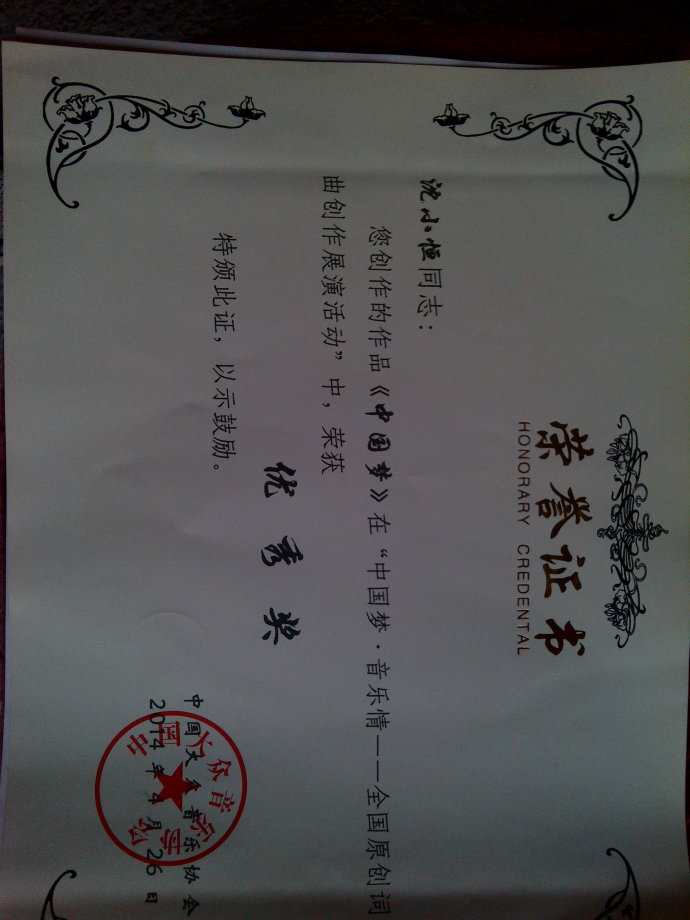 荣誉证书
HONORARY CREDENTAL
沈小恒同志：
您创作的作品《中国梦》在“中国梦·音乐情——全国原创词
曲创作展演活动”中，荣获
优秀奖
特颁此证，以示鼓励。
中国大众音乐协会
2014年4月26日
中国大众音乐协会